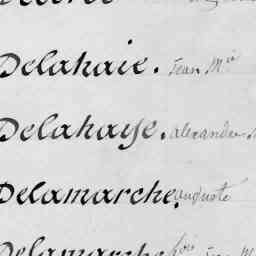 Delahaie. Jean M^ie
Delahaye. alexandre
Delamarche. auguste
Delamarche